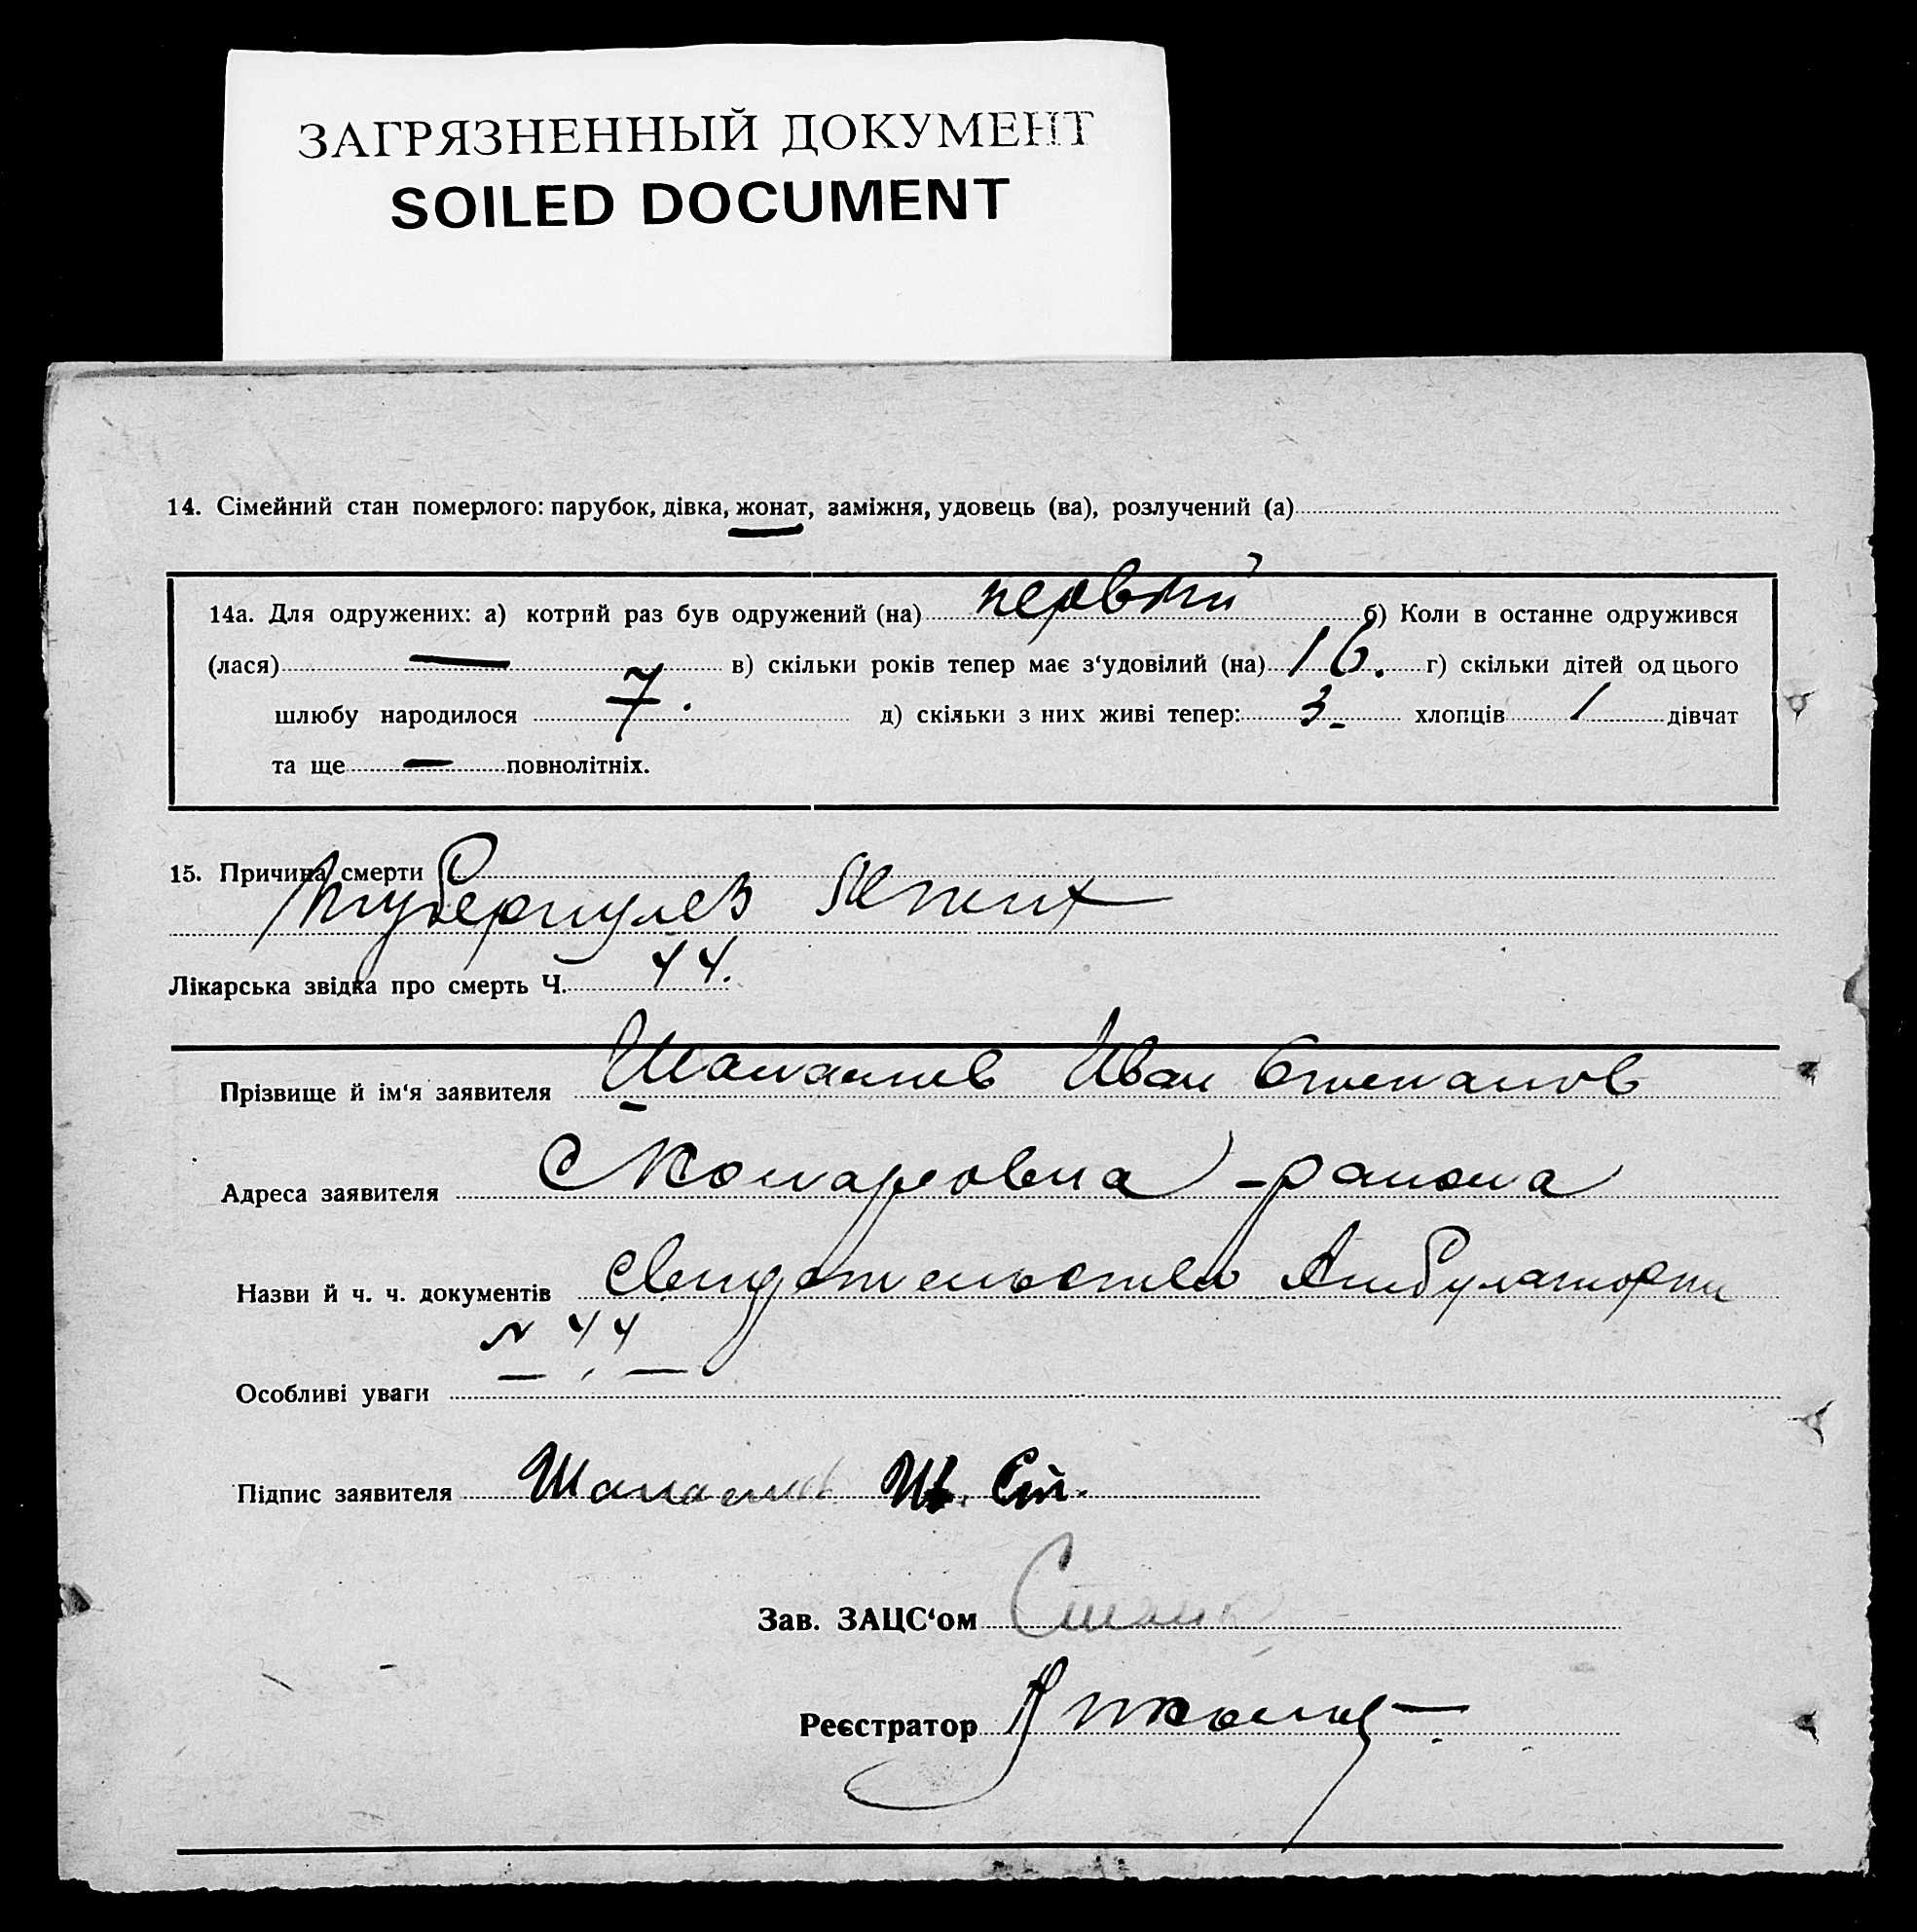 ЗАГРЯЗНЕННЫЙ ДОКУМЕНТ
SOILED DOCUMENT
14. Сімейний стан померлого: парубок, дівка, жонат, заміжня, удовець (ва), розлучений (а)
14а. Для одружених: а) котрий раз був одружений (на) первый б) Коли в останне одружився
(лася) — в) скільки років тепер має з‘удовілий (на) 16. г) скільки дітей од цього
шлюбу народилося 7. д) скільки з них живі тепер: 3 хлопців 1 дівчат
та ще — повнолітніх.
15. Причина смерти
Туберкулез легких
Лікарська звідка про смерть Ч. 44.
Прізвище й ім‘я заявителя Иван Степанов
Адреса заявителя С Комаровка района
Назви й ч. ч. документів Свидетельство Амбулатории
№ 44
Особливі уваги
Підпис заявителя
Зав. ЗАЦС‘ом
Реєстратор